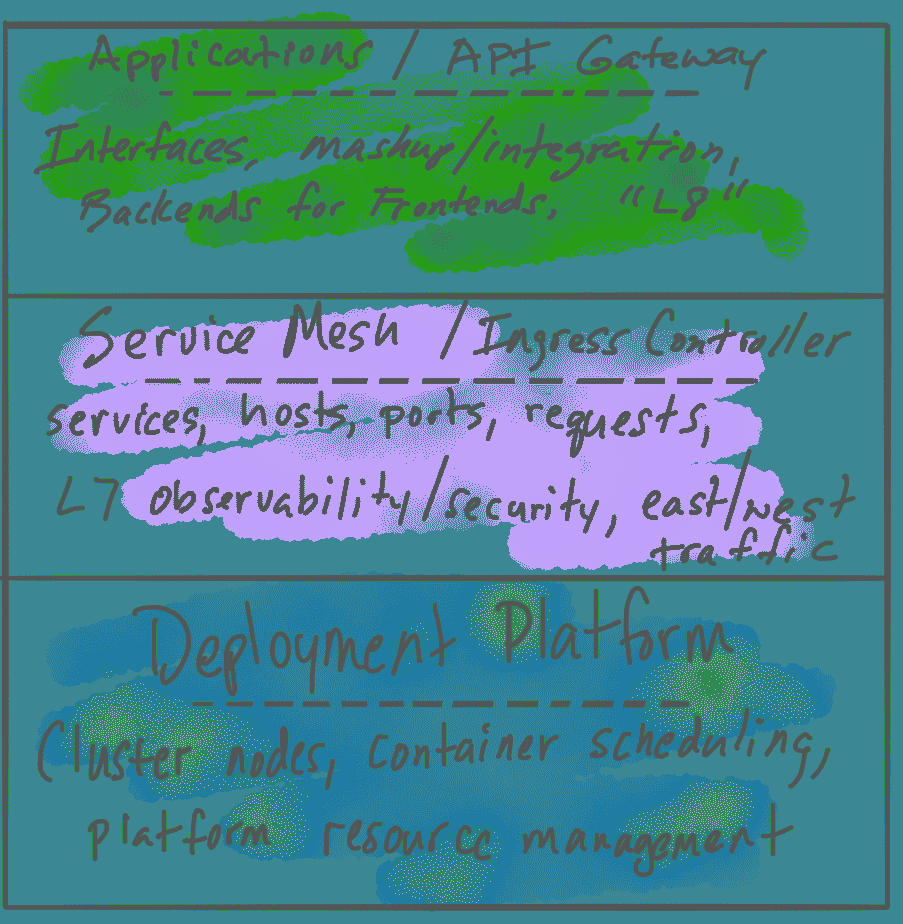 Applications / API Gateway
Interfaces, mashup/integration,
Backends for Frontends, "L8"
Service Mesh / Ingress Controller
services, hosts, ports, requests,
L7 observability/security, east/west
traffic
Deployment Platform
Cluster nodes, container scheduling,
platform resource management